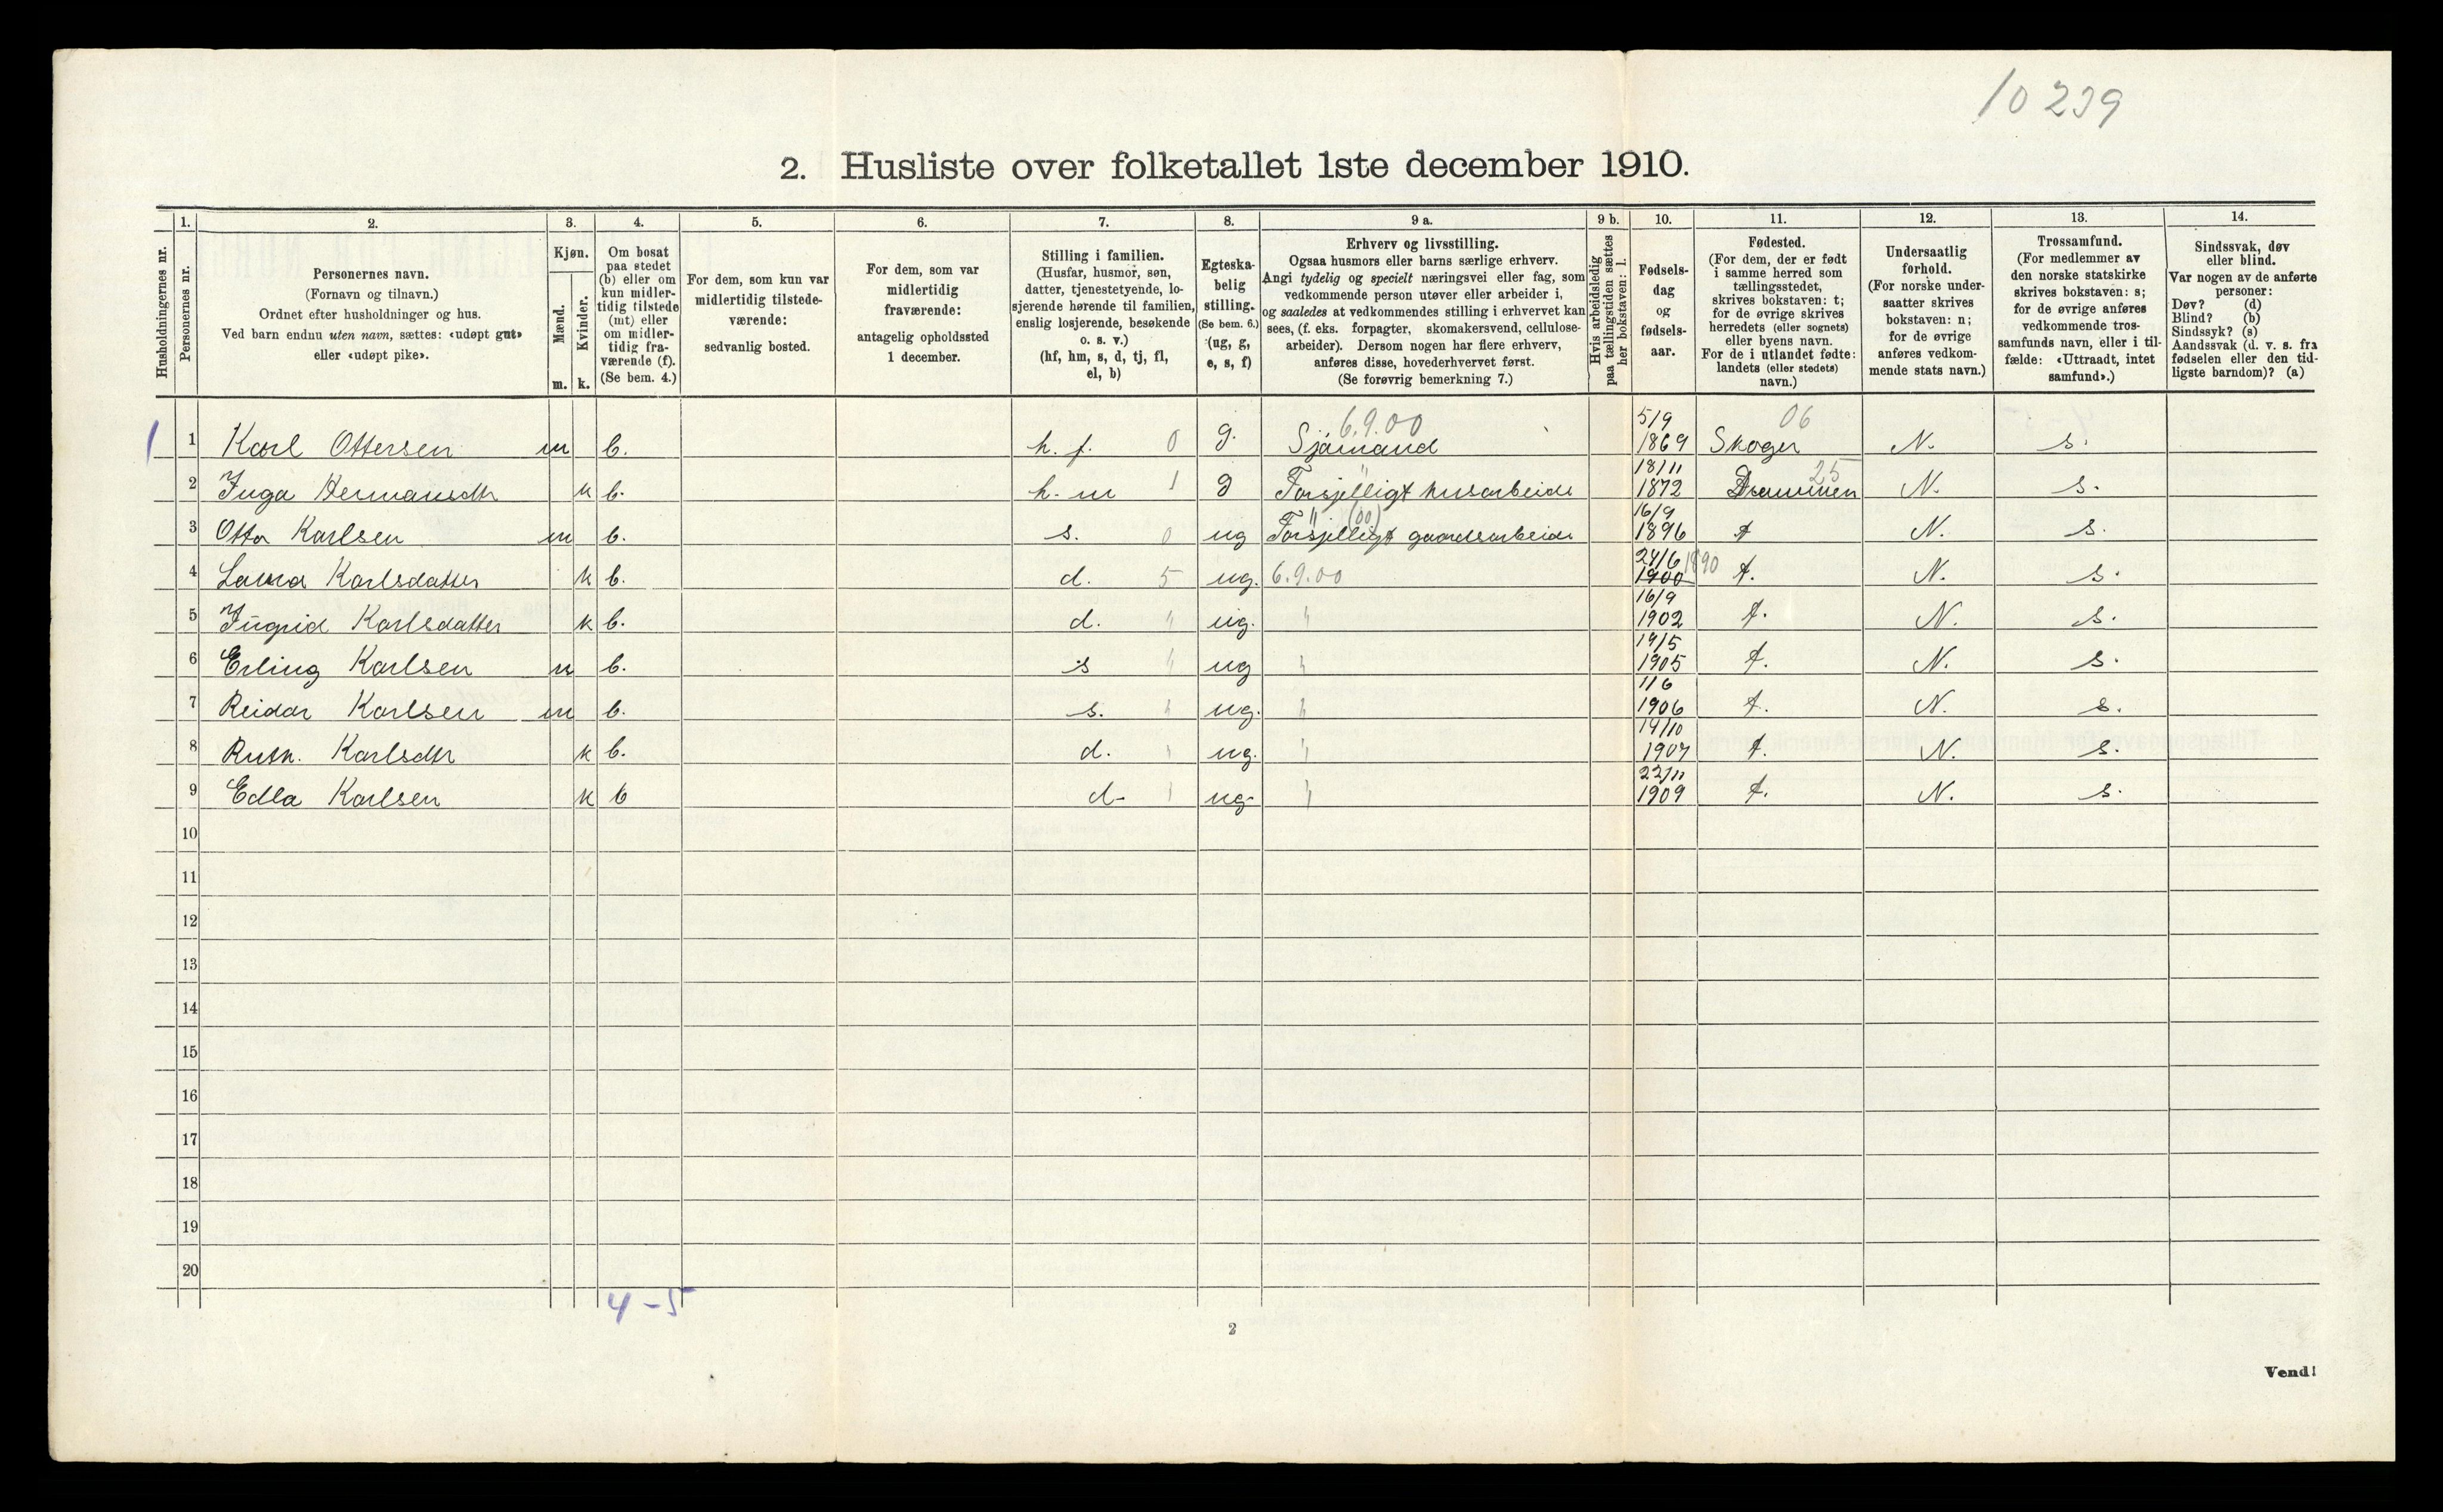 10 239
2. Husliste over folketallet 1ste december 1910.
Husholdningernes nr.
1.
Personernes nr.
2.
Personernes navn.
(Fornavn og tilnavn.)
Ordnet efter husholdninger og hus.
Ved barn endnu uten navn, sættes: «udøpt gut»
eller «udøpt pike».
3.
Kjøn.
Mænd.
m.
Kvinder.
k.
4.
Om bosat
paa stedet
(b) eller om
kun midler-
tidig tilstede
(mt) eller
om midler-
tidig fra-
værende (f).
(Se bem. 4.)
5.
For dem, som kun var
midlertidig tilstede-
værende:
sedvanlig bosted.
6.
For dem, som var
midlertidig
fraværende:
antagelig opholdssted
1 december.
7.
Stilling i familien.
(Husfar, husmor, søn,
datter, tjenestetyende, lo-
sjerende hørende til familien,
enslig losjerende, besøkende
o. s. v.)
(hf, hm, s, d, tj, fl,
el, b)
8.
Egteska-
belig
stilling.
(Se bem. 6.)
(ug, g,
e, s, f)
9 a.
Erhverv og livsstilling.
Ogsaa husmors eller barns særlige erhverv.
Angi tydelig og specielt næringsvei eller fag, som
vedkommende person utøver eller arbeider i,
og saaledes at vedkommendes stilling i erhvervet kan
sees, (f. eks. forpagter, skomakersvend, cellulose-
arbeider). Dersom nogen har flere erhverv,
anføres disse, hovederhvervet først.
(Se forøvrig bemerkning 7.)
9 b.
Hvis arbeidsledig
paa tællingstiden sættes
her bokstaven: l.
10.
Fødsels-
dag
og
fødsels-
aar.
11.
Fødested.
(For dem, der er født
i samme herred som
tællingsstedet,
skrives bokstaven: t;
for de øvrige skrives
herredets (eller sognets)
eller byens navn.
For de i utlandet fødte:
landets (eller stedets)
navn.)
12.
Undersaatlig
forhold.
(For norske under-
saatter skrives
bokstaven: n;
for de øvrige
anføres vedkom-
mende stats navn.)
13.
Trossamfund.
(For medlemmer av
den norske statskirke
skrives bokstaven: s;
for de øvrige anføres
vedkommende tros-
samfunds navn, eller i til-
fælde: «Uttraadt, intet
samfund».)
14.
Sindssvak, døv
eller blind.
Var nogen av de anførte
personer:
Døv? (d)
Blind? (b)
Sindssyk? (s)
Aandssvak (d. v. s. fra
fødselen eller den tid-
ligste barndom)? (a)
6.9.00 5/9 06
1 1 Karl Ottersen m b. h. f. 0 g. Sjömand 1869 Skoger N. s.
18/11 25
2 Inga Hermansdtr k b. h. m 1 g Forsjelligt husarbeide 1872 Drammen N. s.
" (00) 16/9
3 Otto Karlsen m b. s. 0 ug Forsjelligt gaardsarbeide 1896 t N. s.
24/6
4 Laura Karlsdatter k b. d. 5 ug. 6.9.00 1900 1890 t. N. s.
16/9
5 Ingrid Karlsdatter k b. d. " ug. " 1902 t. N. s.
19/5
6 Erling Karlsen m b. s " ug " 1905 t. N. s.
1/6
7 Reidar Karlsen m b. s. " ug. " 1906 t. N. s.
14/10
8 Ruth. Karlsdtr k b. d. " ug. " 1907 t. N. s.
22/11
9 Edla Karlsen k b d- " ug- " 1909 t. N. s.
10
11
12
13
14
15
16
17
18
19
20
4-5
2
Vend!